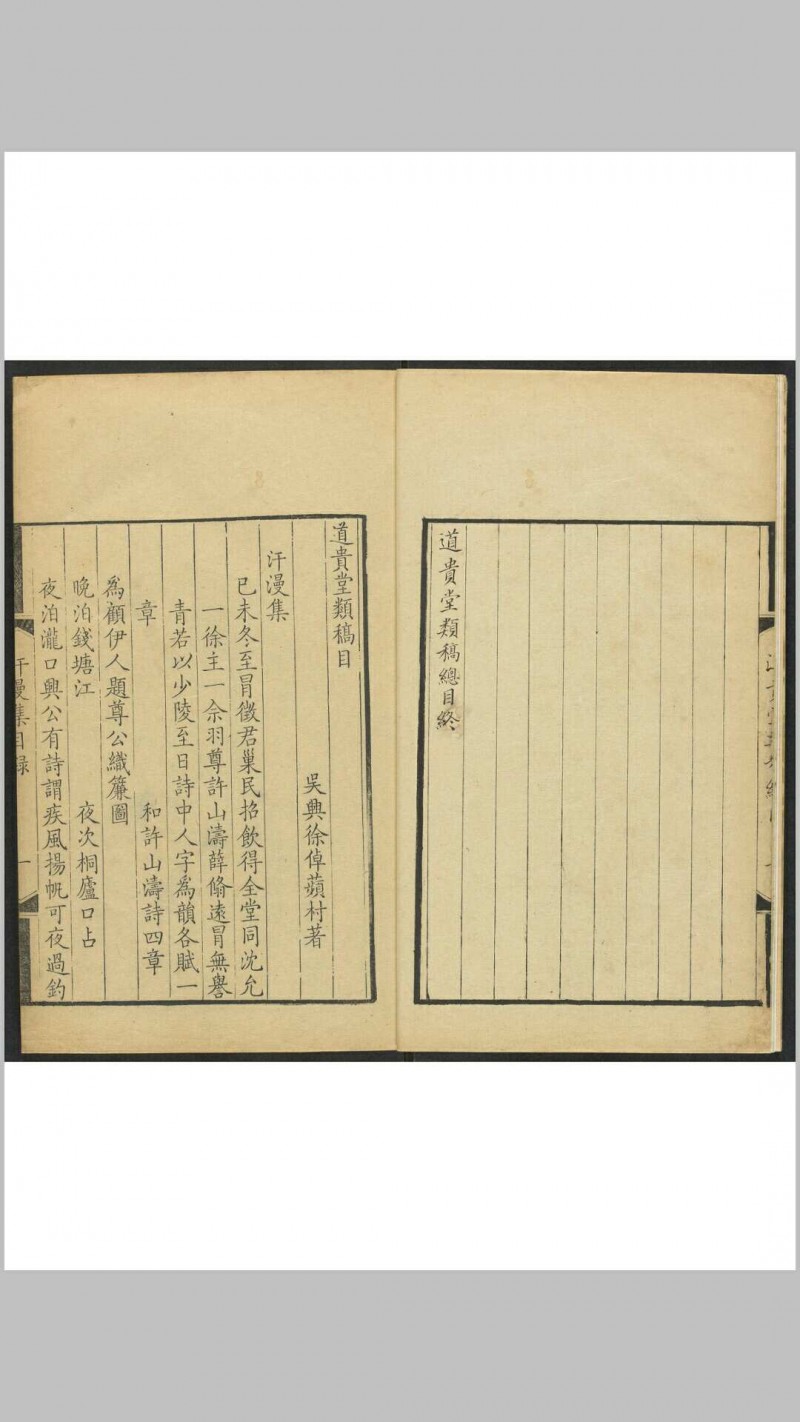 道貴堂類稿總目終
道貴堂類稿目
吳興徐倬蘋村著
汗漫集
己未冬至冒徵君巢民招飲得全堂同沈允
一徐主一佘羽尊許山濤薛脩遠冒無譽
青若以少陵至日詩中人字為韻各賦一
章 和許山濤詩四章
為顧伊人題尊公織簾圖
晚泊錢塘江 夜次桐廬口占
夜泊瀧口興公有詩謂疾風揚帆可夜過釣
汗漫集目録 一